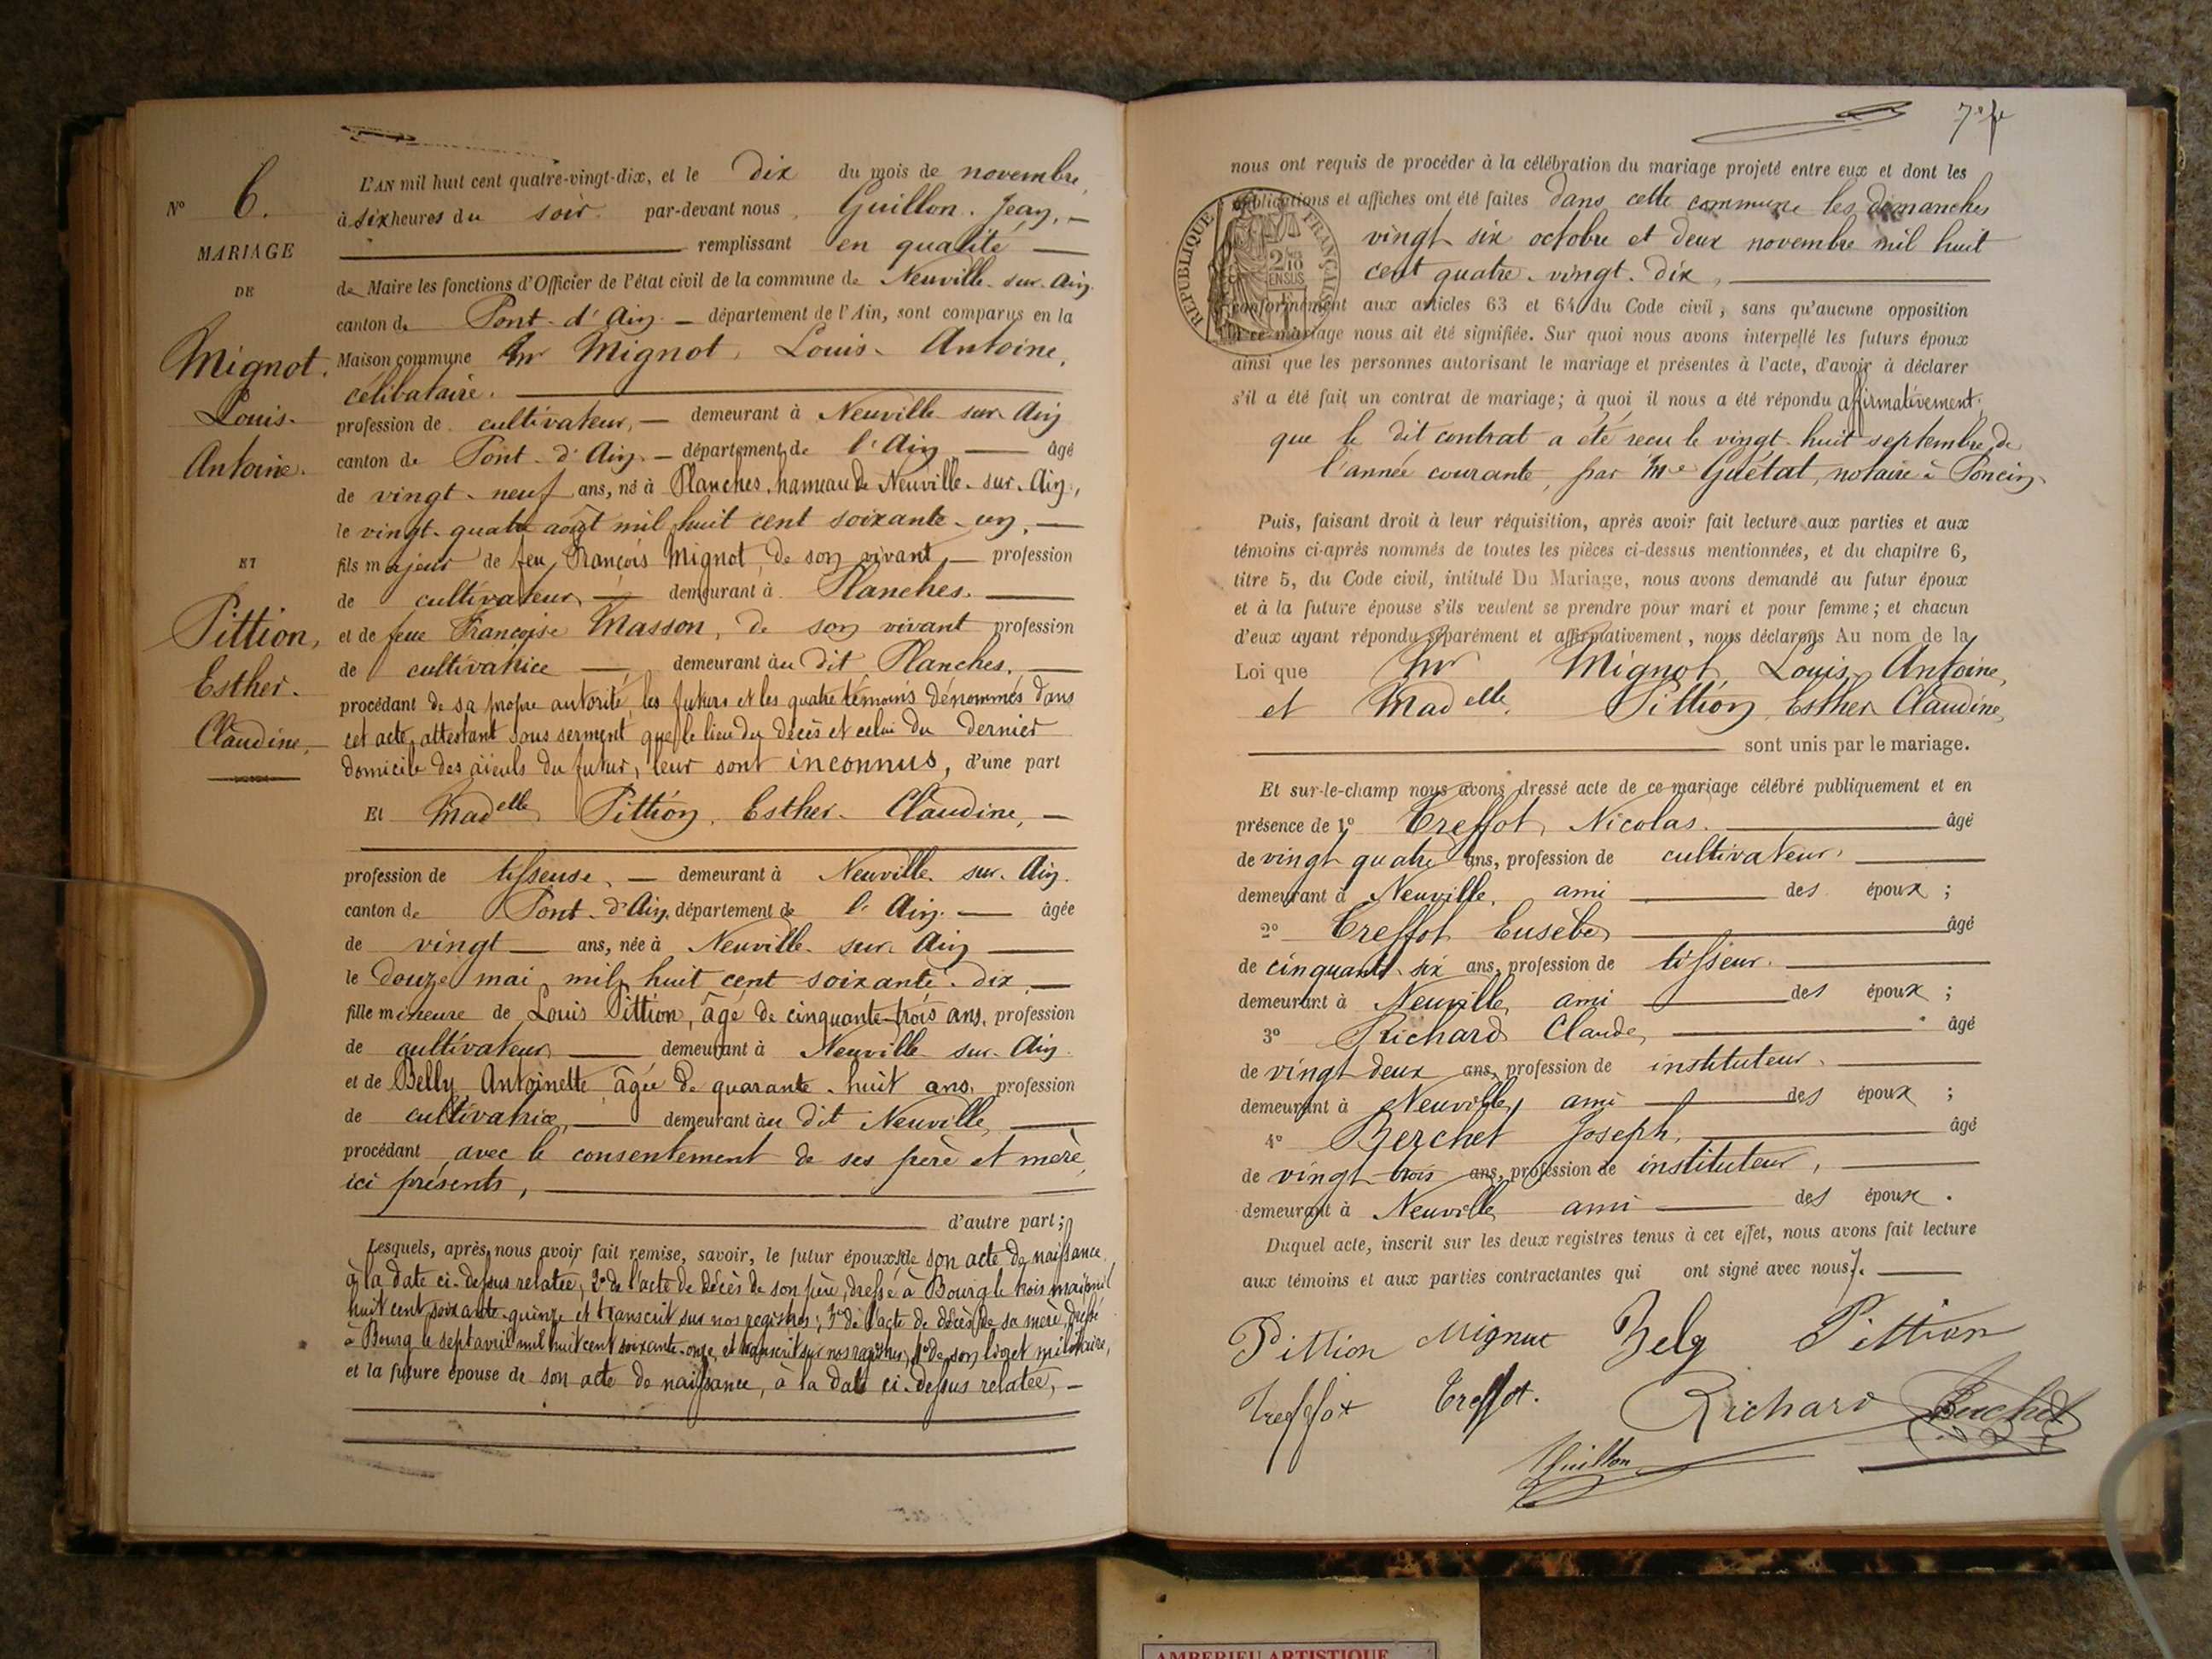 N° 6.
MARIAGE
DE
Mignot.
Louis.
Antoine.
ET
Pittion,
Esther.
Claudine,
L'AN mil huit cent quatre-vingt-dix, et le dix du mois de novembre,
à six heures du soir. par-devant nous, Guillon. Jean,
remplissant en qualité
de Maire les fonctions d'Officier de l'état civil de la commune de Neuville-sur-Ain
canton de Pont-d'Ain département de l'Ain, sont comparus en la
Maison commune Mr Mignot, Louis-Antoine,
célibataire.
profession de cultivateur, demeurant à Neuville-sur-Ain
canton de Pont-d'Ain département de l'Ain âgé
de vingt-neuf ans, né à Planches, hameau de Neuville-sur-Ain,
le vingt-quatre août mil huit cent soixante-un,
fils majeur de feu François Mignot, de son vivant profession
de cultivateur, demeurant à Planches.
et de feue Françoise Masson, de son vivant profession
de cultivatrice demeurant au dit Planches,
procédant de sa propre autorité, les futurs et les quatre témoins dénommés dans
cet acte, attestant sous serment que le lieu du décès et celui du dernier
domicile des aïeuls du futur, leur sont inconnus, d'une part
Et Madelle Pittion, Esther-Claudine,
profession de tisseuse, demeurant à Neuville-sur-Ain.
canton de Pont-d'Ain, département de l'Ain. âgée
de vingt ans, née à Neuville-sur-Ain
le douze mai mil huit cent soixante-dix,
fille mineure de Louis Pittion, âgé de cinquante-trois ans, profession
de cultivateur demeurant à Neuville-sur-Ain.
et de Belly Antoinette âgée de quarante-huit ans, profession
de cultivatrice, demeurant au dit Neuville,
procédant avec le consentement de ses père et mère
ici présents,
d'autre part;
Lesquels, après nous avoir fait remise, savoir, le futur époux 1° de son acte de naissance
à la date ci-dessus relatée; 2° de l'acte de décès de son père, dressé à Bourg le trois mai mil
huit cent soixante-quinze et transcrit sur nos registres; 3° de l'acte de décès de sa mère, dressé
à Bourg le sept avril mil huit cent soixante-onze, et transcrit sur nos registres; 4° de son livret militaire,
et la future épouse de son acte de naissance, à la date ci-dessus relatée,
7e
nous ont requis de procéder à la célébration du mariage projeté entre eux et dont les
publications et affiches ont été faites dans cette commune les dimanches
vingt-six octobre et deux novembre mil huit
cent quatre-vingt-dix,
RÉPUBLIQUE FRANÇAISE
2/10 EN SUS
conformément aux articles 63 et 64 du Code civil, sans qu'aucune opposition
à ce mariage nous ait été signifiée. Sur quoi nous avons interpellé les futurs époux
ainsi que les personnes autorisant le mariage et présentes à l'acte, d'avoir à déclarer
s'il a été fait un contrat de mariage; à quoi il nous a été répondu affirmativement;
que le dit contrat a été reçu le vingt-huit septembre de
l'année courante, par Me Guétat, notaire à Poncin.
Puis, faisant droit à leur réquisition, après avoir fait lecture aux parties et aux
témoins ci-après nommés de toutes les pièces ci-dessus mentionnées, et du chapitre 6,
titre 5, du Code civil, intitulé Du Mariage, nous avons demandé au futur époux
et à la future épouse s'ils veulent se prendre pour mari et pour femme; et chacun
d'eux ayant répondu séparément et affirmativement, nous déclarons Au nom de la
Loi que Mr Mignot, Louis-Antoine,
et Madelle Pittion, Esther Claudine,
sont unis par le mariage.
Et sur-le-champ nous avons dressé acte de ce mariage célébré publiquement et en
présence de 1° Treffot, Nicolas. âgé
de vingt quatre ans, profession de cultivateur,
demeurant à Neuville, ami des époux;
2° Treffot Eusèbe âgé
de cinquante-six ans, profession de tisseur.
demeurant à Neuville, ami des époux;
3° Richard Claude, âgé
de vingt deux ans, profession de instituteur,
demeurant à Neuville, ami des époux;
4° Berchet Joseph, âgé
de vingt-trois ans, profession de instituteur,
demeurant à Neuville ami des époux.
Duquel acte, inscrit sur les deux registres tenus à cet effet, nous avons fait lecture
aux témoins et aux parties contractantes qui ont signé avec nous.
Pittion Mignot Bely Pittion
Treffot Treffot. Richard Berchet
Guillon
AMBERIEU ARTISTIQUE